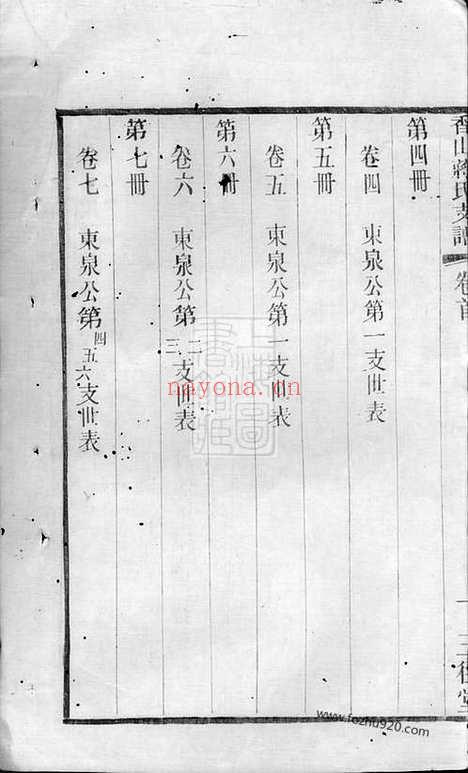 香山蔣氏支譜 卷首
第四冊
卷四 東泉公第一支世表
第五冊
卷五 東泉公第一支世表
第六冊
卷六 東泉公第二三支世表
第七冊
卷七 東泉公第四五六支世表
nayona.cn
www.fozhu920.com